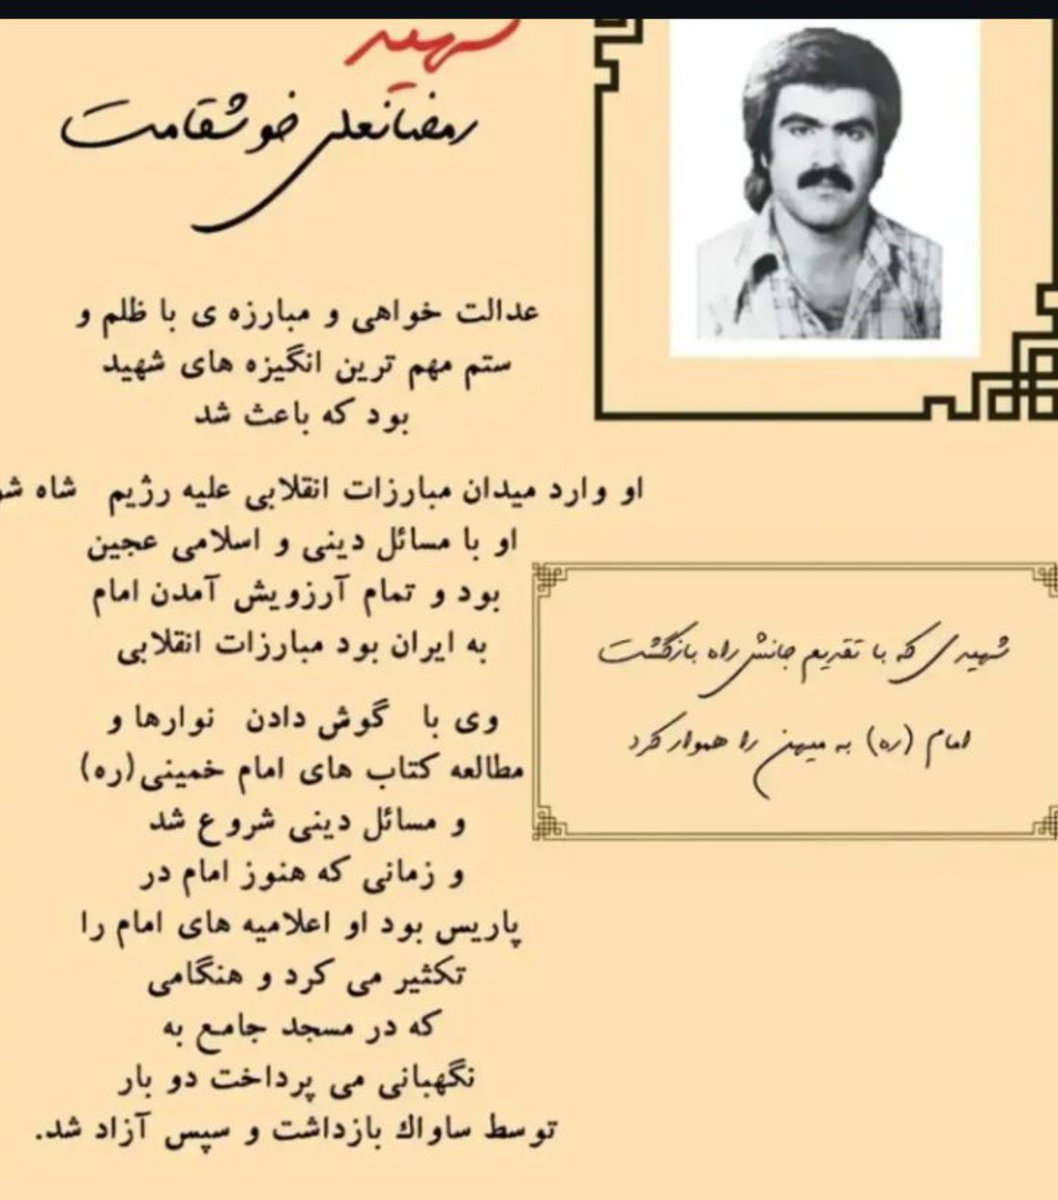 شهید
رمضانعلی خوشقامت
عدالت خواهی و مبارزه ی با ظلم و
ستم مهم ترین انگیزه های شهید
بود که باعث شد
او وارد میدان مبارزات انقلابی علیه رژیم شاه شو
او با مسائل دینی و اسلامی عجین
بود و تمام آرزویش آمدن امام
به ایران بود مبارزات انقلابی
وی با گوش دادن نوارها و
مطالعه کتاب های امام خمینی(ره)
و مسائل دینی شروع شد
و زمانی که هنوز امام در
پاریس بود او اعلامیه های امام را
تکثیر می کرد و هنگامی
که در مسجد جامع به
نگهبانی می پرداخت دو بار
توسط ساواك بازداشت و سپس آزاد شد.
شهیدی که با تقدیم جانش راه بازگشت
امام (ره) به میهن را هموار کرد